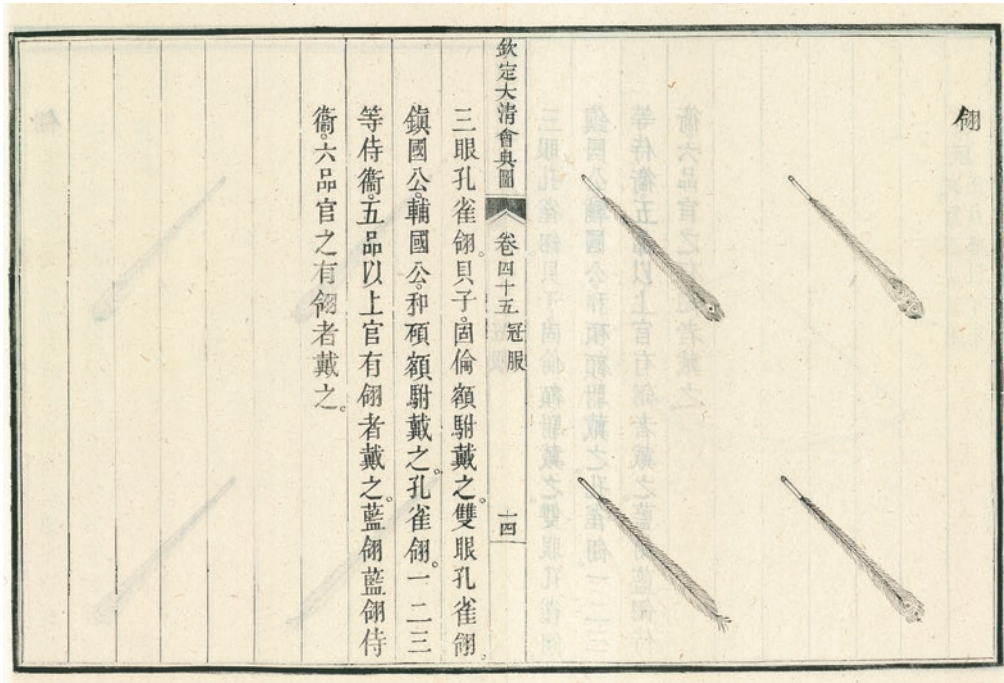 翎
欽定大清會典圖 卷四十五 冠服 十四
三眼孔雀翎。貝子。固倫額駙戴之。雙眼孔雀翎。
鎭國公。輔國公。和碩額駙戴之。孔雀翎。一二三
等侍衞。五品以上官有翎者戴之。藍翎藍翎侍
衞。六品官之有翎者戴之。